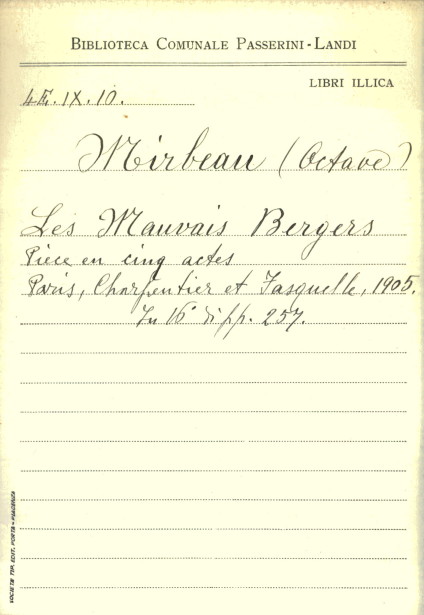 BIBLIOTECA COMUNALE PASSERINI-LANDI
LIBRI ILLICA
4E.IX.10.
Mirbeau (Octave)
Les Mauvais Bergers
Pièce en cinq actes
Paris, Charpentier et Fasquelle, 1905.
In 16° di pp. 257.
SOCIETÀ TIP. EDIT. PORTA-PIACENZA